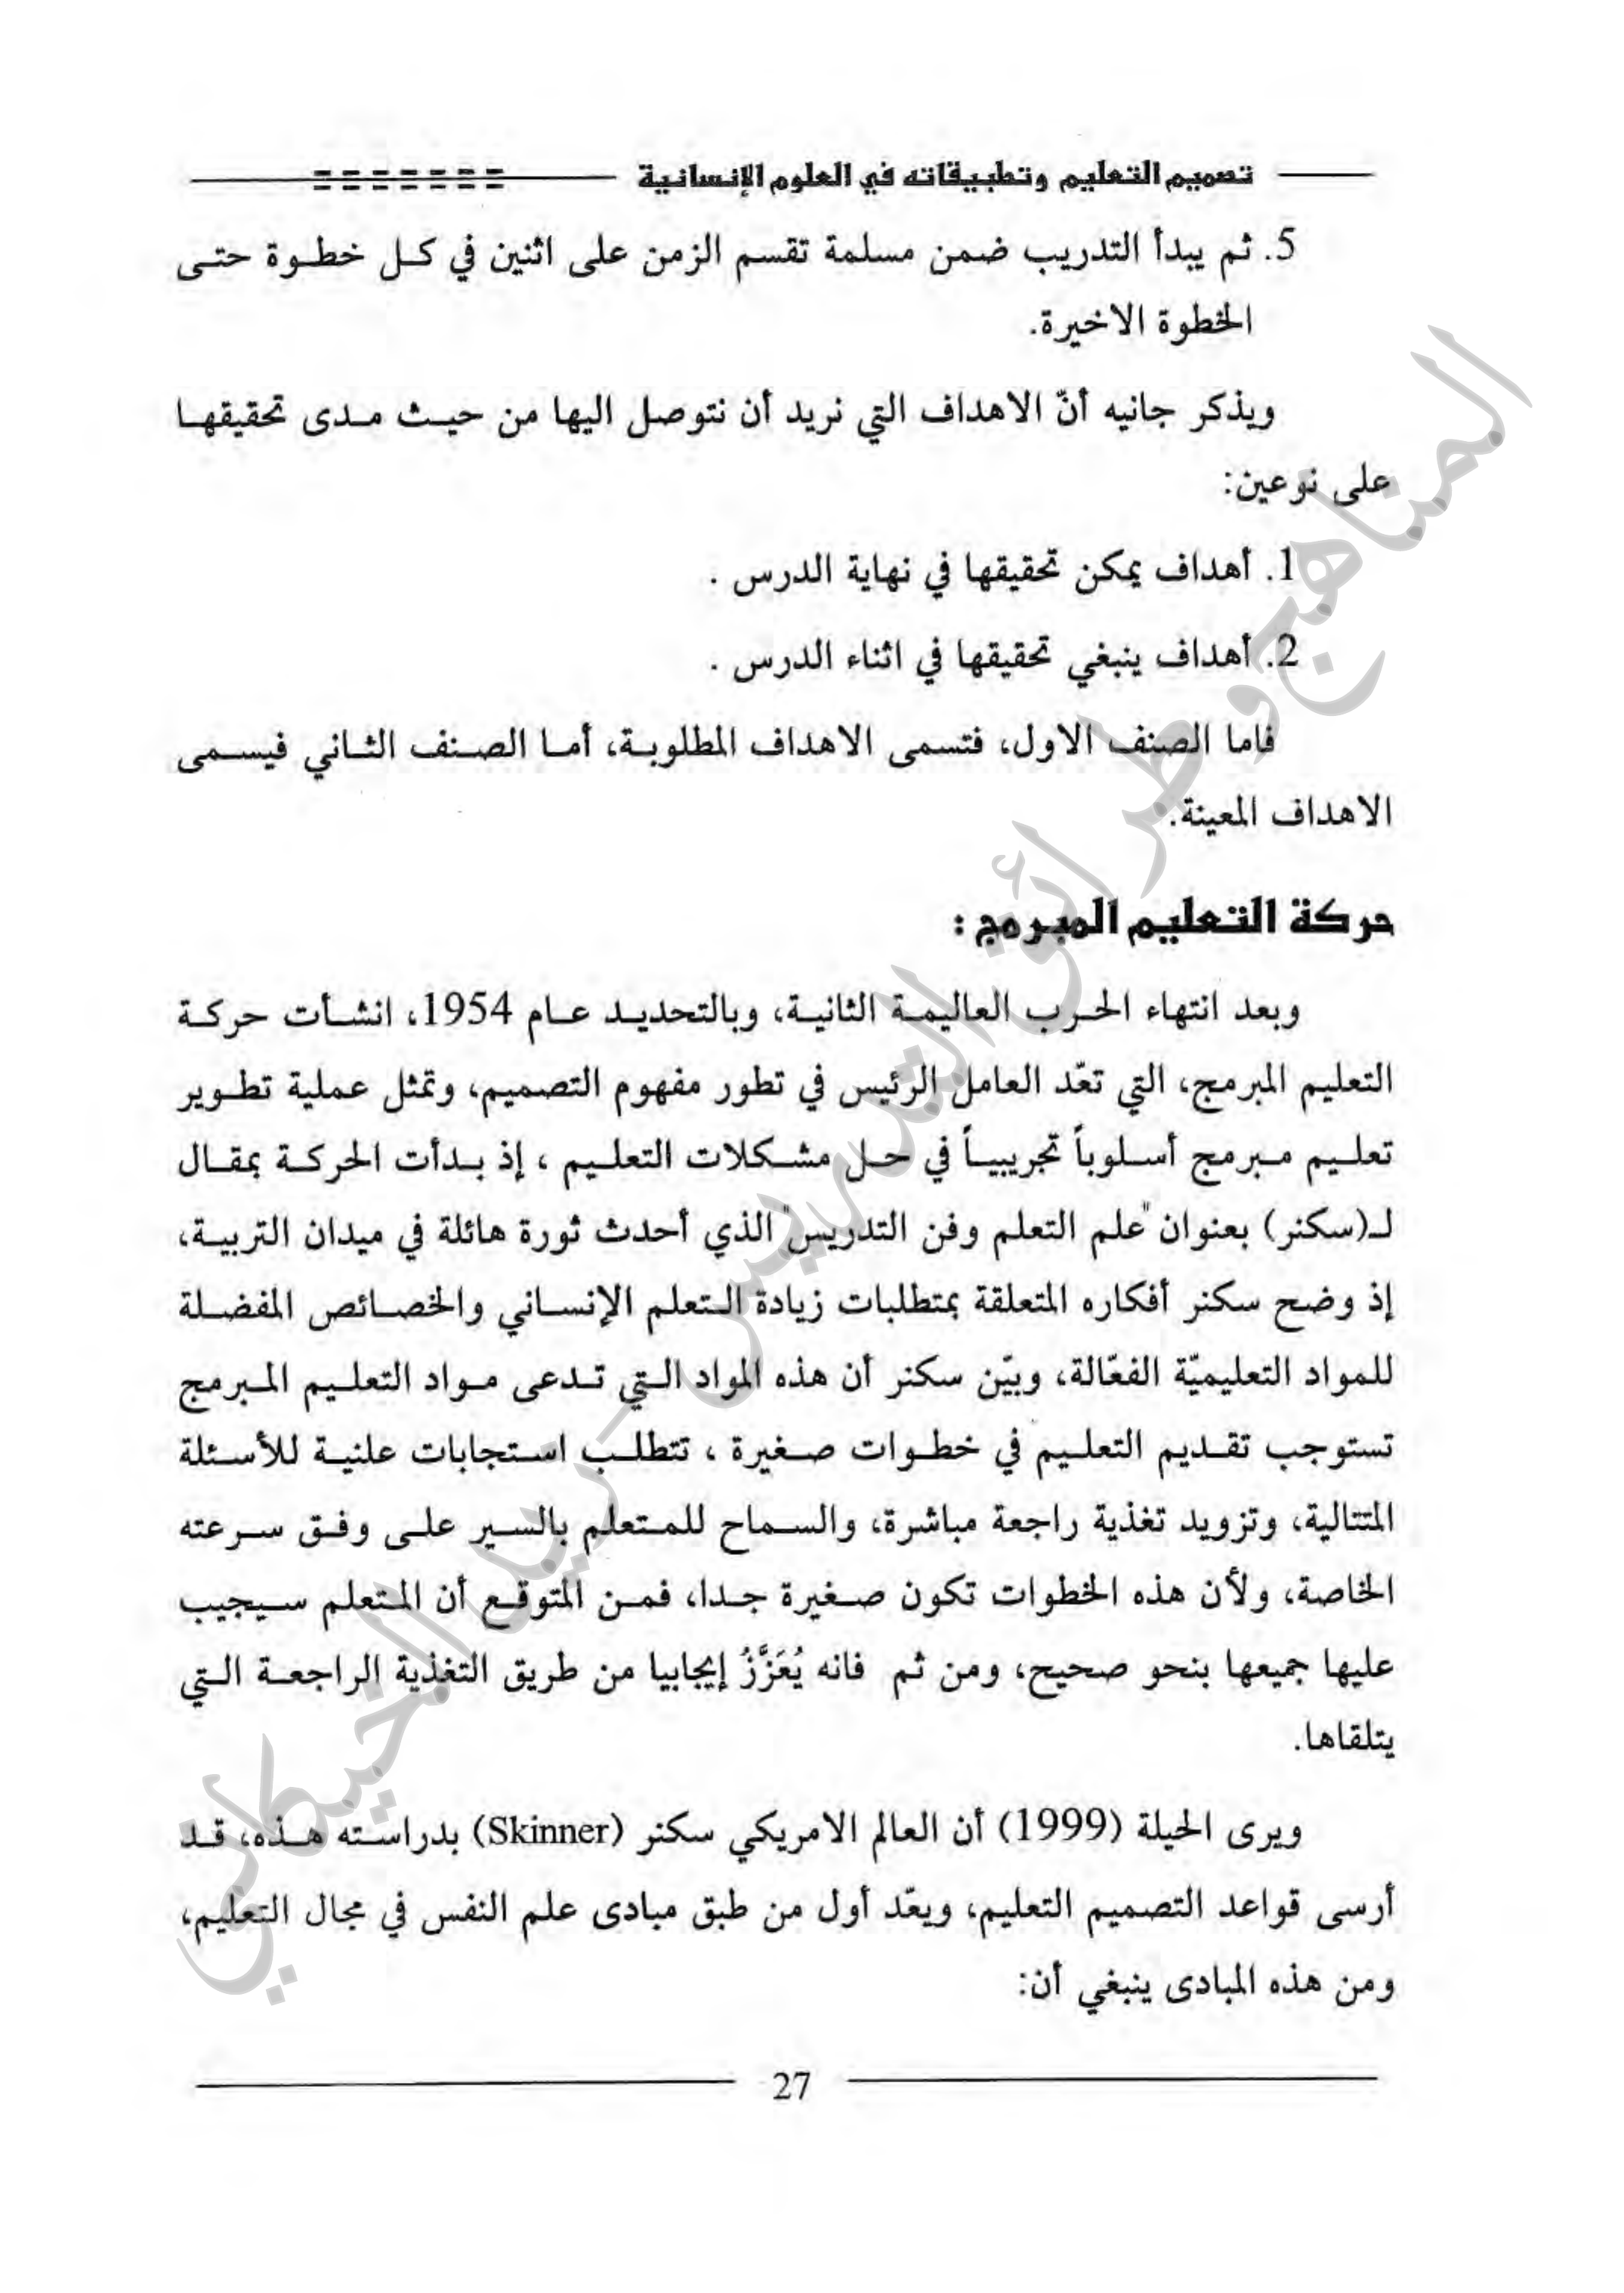 تصميم التعليم وتطبيقاته في العلوم الإنسانية
5. ثم يبدأ التدريب ضمن مسلمة تقسم الزمن على اثنين في كل خطوة حتى
الخطوة الاخيرة.
ويذكر جانيه أنّ الاهداف التي نريد أن نتوصل اليها من حيث مدى تحقيقها
على نوعين:
1. أهداف يمكن تحقيقها في نهاية الدرس .
2. أهداف ينبغي تحقيقها في اثناء الدرس .
فاما الصنف الاول، فتسمى الاهداف المطلوبة، أما الصنف الثاني فيسمى
الاهداف المعينة.
حركة التعليم المبرمج :
وبعد انتهاء الحرب العاليمة الثانية، وبالتحديد عام 1954، انشأت حركة
التعليم المبرمج، التي تعّد العامل الرئيس في تطور مفهوم التصميم، وتمثل عملية تطوير
تعليم مبرمج أسلوباً تجريبياً في حل مشكلات التعليم ، إذ بدأت الحركة بمقال
لـ(سكنر) بعنوان "علم التعلم وفن التدريس" الذي أحدث ثورة هائلة في ميدان التربية،
إذ وضح سكنر أفكاره المتعلقة بمتطلبات زيادة التعلم الإنساني والخصائص المفضلة
للمواد التعليميّة الفعّالة، وبيّن سكنر أن هذه المواد التي تدعى مواد التعليم المبرمج
تستوجب تقديم التعليم في خطوات صغيرة ، تتطلب استجابات علنية للأسئلة
المتتالية، وتزويد تغذية راجعة مباشرة، والسماح للمتعلم بالسير على وفق سرعته
الخاصة، ولأن هذه الخطوات تكون صغيرة جدا، فمن المتوقع أن المتعلم سيجيب
عليها جميعها بنحو صحيح، ومن ثم فانه يُعَزَّزُ إيجابيا من طريق التغذية الراجعة التي
يتلقاها.
ويرى الحيلة (1999) أن العالم الامريكي سكنر (Skinner) بدراسته هذه، قد
أرسى قواعد التصميم التعليم، ويعّد أول من طبق مبادى علم النفس في مجال التعليم،
ومن هذه المبادى ينبغي أن:
27
المناهج وطرائق التدريس - زيد الخيكاني